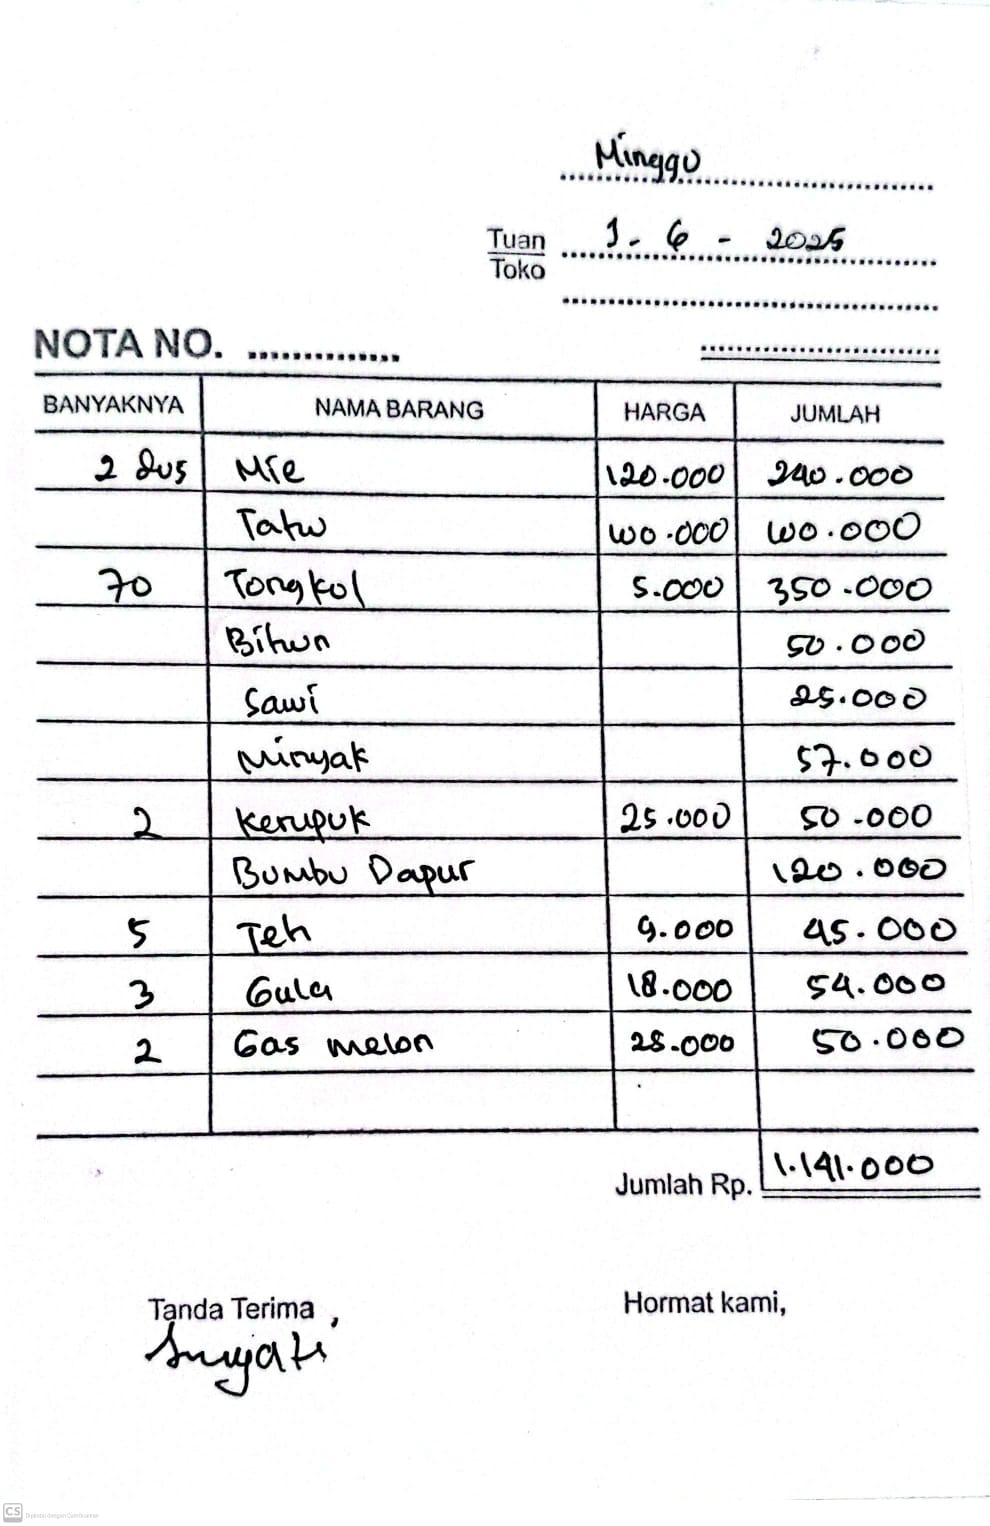 Minggu
Tuan 1 - 6 - 2025
Toko
NOTA NO.
BANYAKNYA NAMA BARANG HARGA JUMLAH
2 Dus Mie 120.000 240.000
Tahu 100.000 100.000
70 Tongkol 5.000 350.000
Bihun 50.000
Sawi 25.000
Minyak 57.000
2 Kerupuk 25.000 50.000
Bumbu Dapur 120.000
5 Teh 9.000 45.000
3 Gula 18.000 54.000
2 Gas melon 25.000 50.000
Jumlah Rp. 1.141.000
Tanda Terima , Hormat kami,
Suyati
CS Dipindai dengan CamScanner